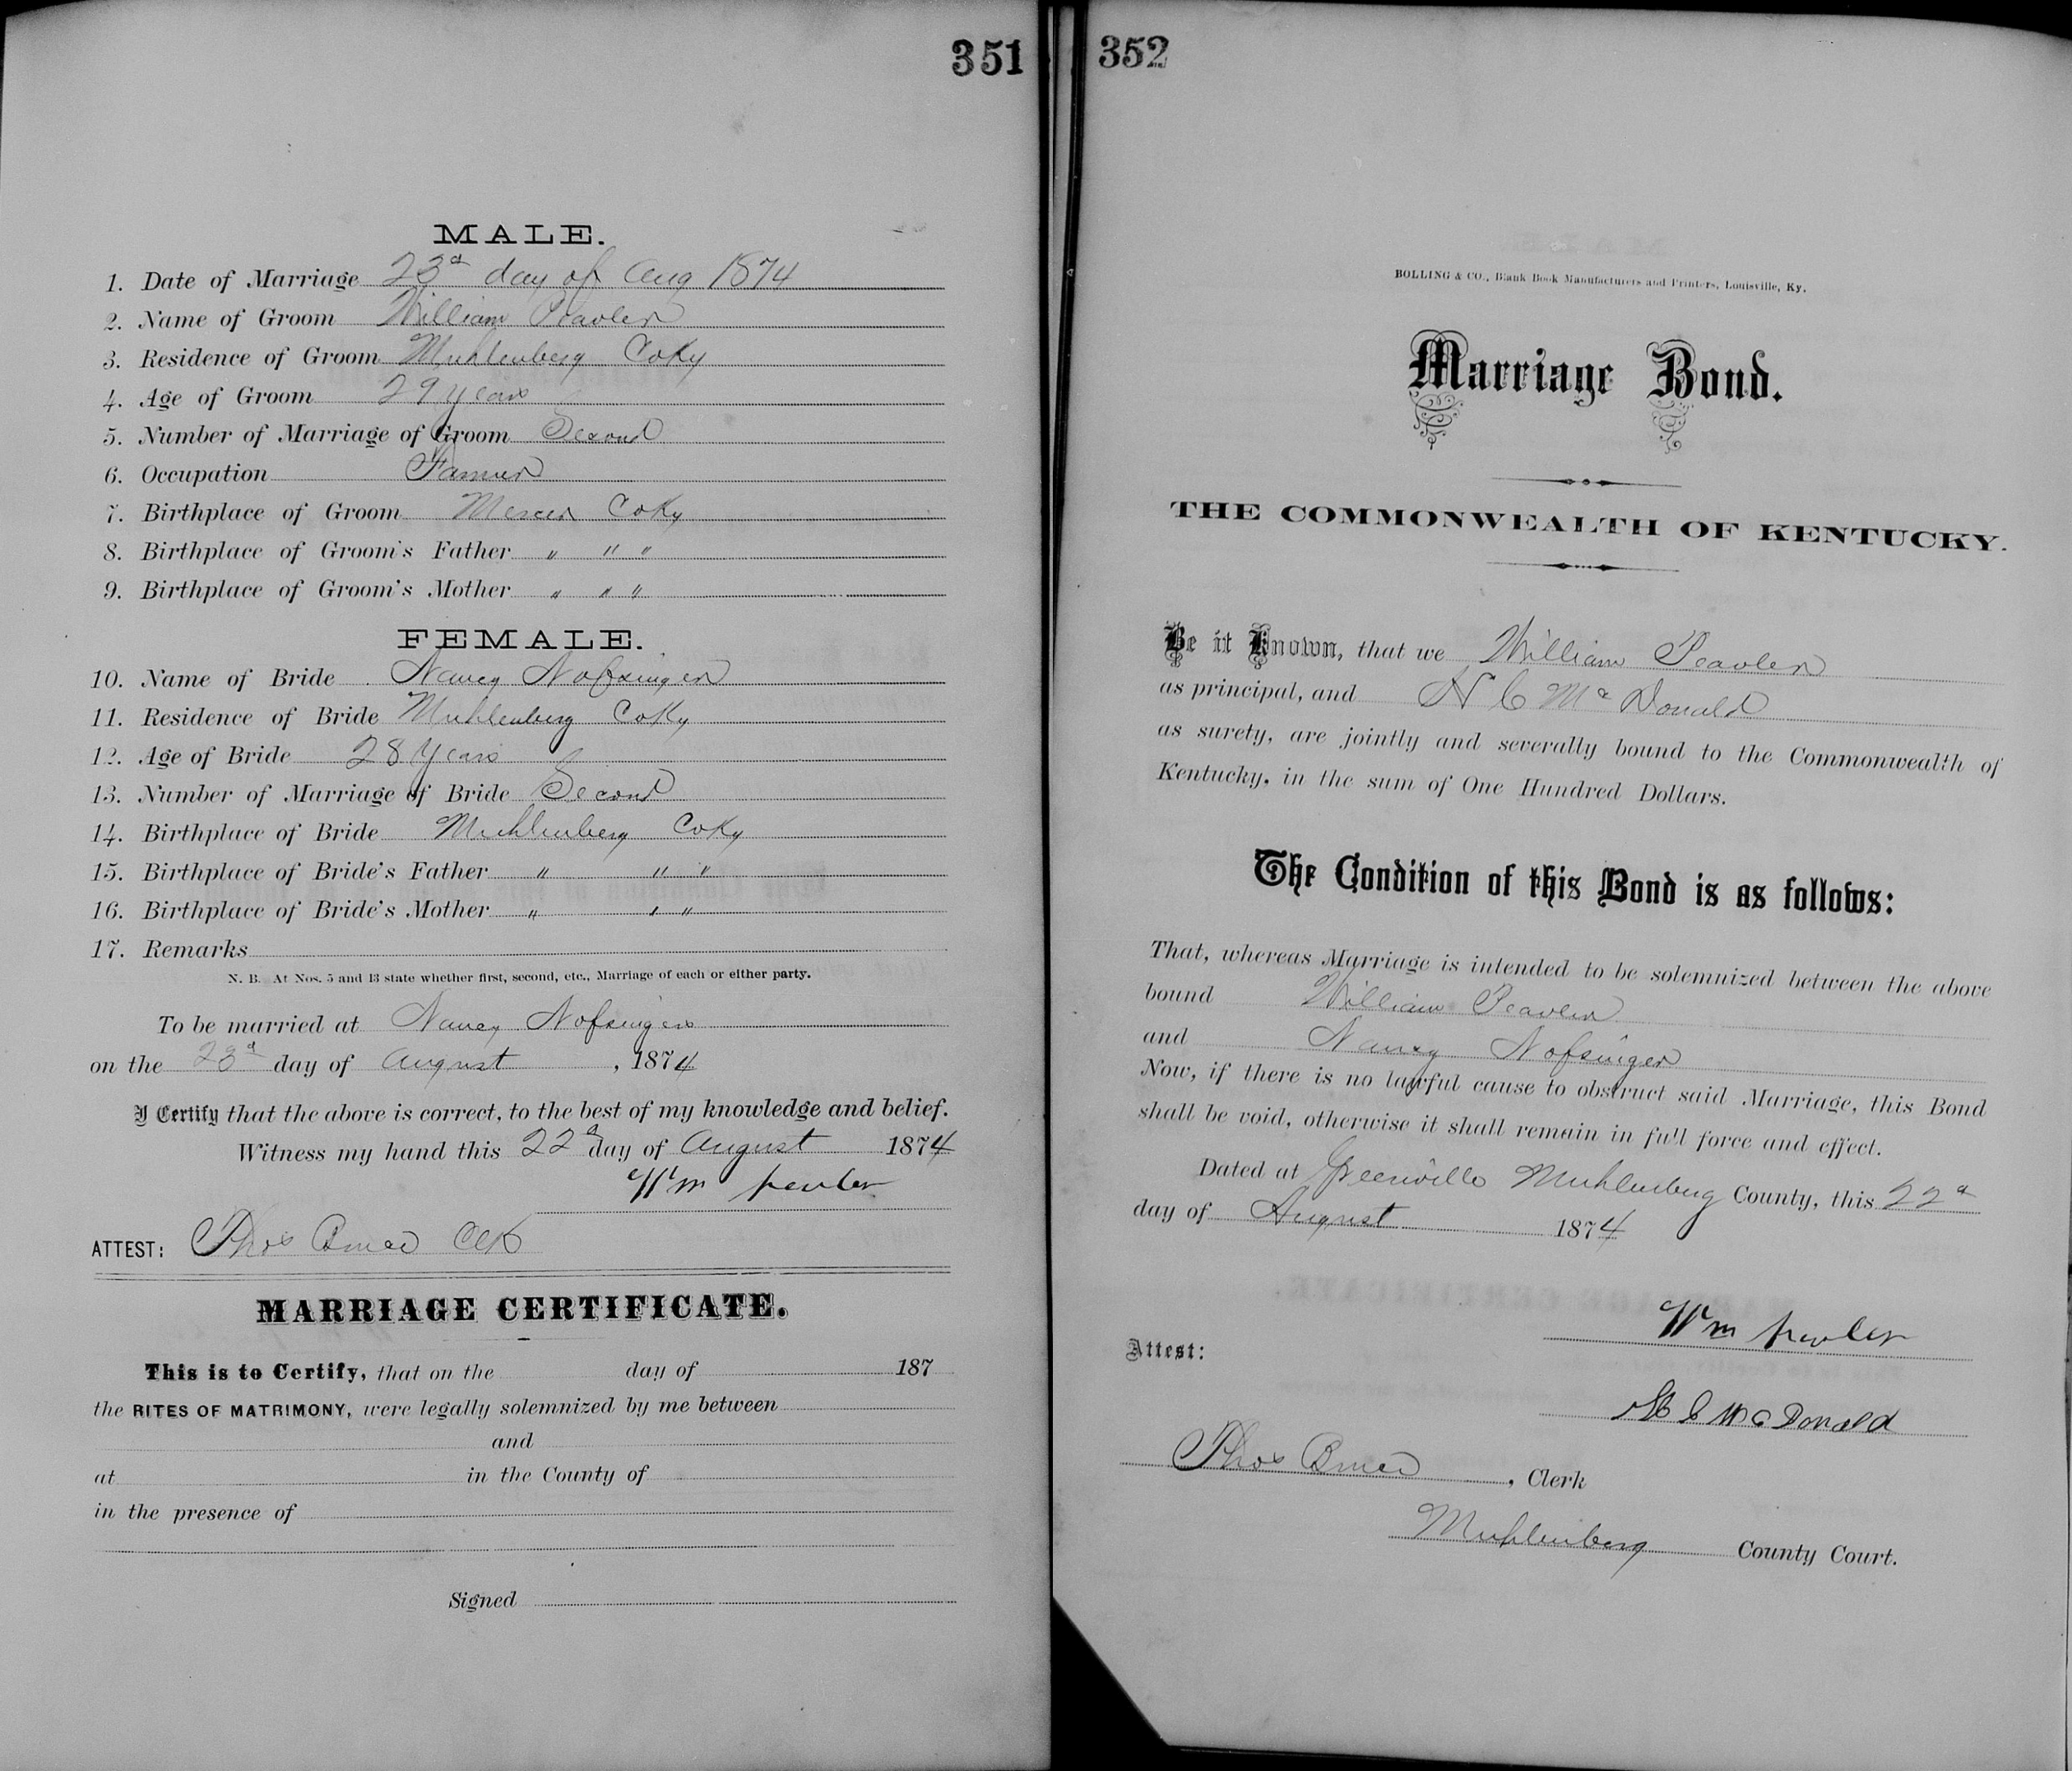 351
MALE.
1. Date of Marriage 23d day of Aug 1874
2. Name of Groom William Peavler
3. Residence of Groom Muhlenberg CoKy
4. Age of Groom 29 years
5. Number of Marriage of Groom Second
6. Occupation Farmer
7. Birthplace of Groom Mercer CoKy
8. Birthplace of Groom's Father " " "
9. Birthplace of Groom's Mother " " "
FEMALE.
10. Name of Bride Nancy Nofsinger
11. Residence of Bride Muhlenberg CoKy
12. Age of Bride 28 years
13. Number of Marriage of Bride Second
14. Birthplace of Bride Muhlenberg CoKy
15. Birthplace of Bride's Father " " "
16. Birthplace of Bride's Mother " " "
17. Remarks
N. B. At Nos. 5 and 13 state whether first, second, etc., Marriage of each or either party.
To be married at Nancy Nofsinger
on the 23d day of August, 1874
I Certify that the above is correct, to the best of my knowledge and belief.
Witness my hand this 22d day of August 1874
Wm Peavler
ATTEST: Thos Bruce Clk
MARRIAGE CERTIFICATE.
This is to Certify, that on the day of 187
the RITES OF MATRIMONY, were legally solemnized by me between
and
at in the County of
in the presence of
Signed
352
BOLLING & CO., Blank Book Manufacturers and Printers, Louisville, Ky.
Marriage Bond.
THE COMMONWEALTH OF KENTUCKY.
Be it Known, that we William Peavler
as principal, and N C McDonald
as surety, are jointly and severally bound to the Commonwealth of
Kentucky, in the sum of One Hundred Dollars.
The Condition of this Bond is as follows:
That, whereas Marriage is intended to be solemnized between the above
bound William Peavler
and Nancy Nofsinger
Now, if there is no lawful cause to obstruct said Marriage, this Bond
shall be void, otherwise it shall remain in full force and effect.
Dated at Greenville Muhlenberg County, this 22d
day of August 1874
Wm Peavler
Attest:
C McDonald
Thos Bruce, Clerk
Muhlenberg County Court.